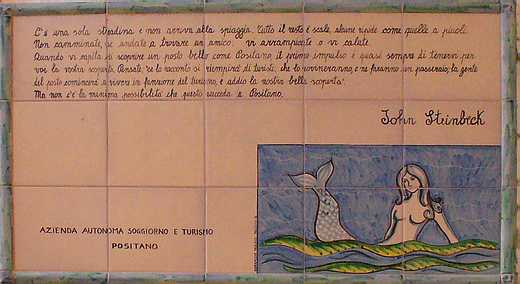 C'è una sola stradina e non arriva alla spiaggia. Tutto il resto è scale, alcune ripide come quelle a pioli.
Non camminate, se andate a trovare un amico. vi arrampicate o vi calate.
Quando vi capita di scoprire un posto bello come Positano il primo impulso è quasi sempre di tenervi per
voi la vostra scoperta. Pensate, "se lo racconto si riempirà di turisti, che lo rovineranno, e ne faranno un passeraio; la gente
del posto comincerà a vivere in funzione del turismo, e addio la vostra bella scoperta".
Ma non c'è la minima possibilità che questo succeda a Positano.
John Steinbeck
AZIENDA AUTONOMA SOGGIORNO E TURISMO
POSITANO